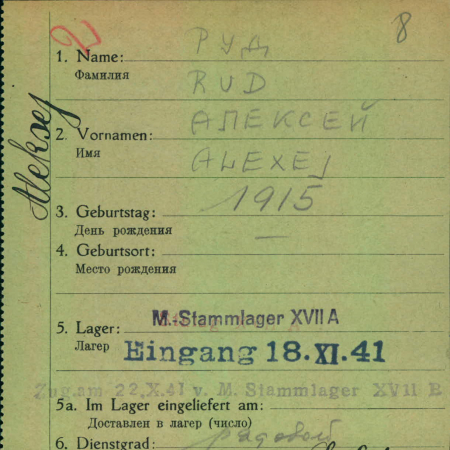 2
8
Aleksej
1. Name: РУД
Фамилия
RUD
2. Vornamen: АЛЕКСЕЙ
Имя
ALEXEJ
3. Geburtstag: 1915
День рождения
4. Geburtsort: —
Место рождения
5. Lager: M.-Stammlager XVII A
Лагерь
Eingang 18.XI.41
Zug.am 22.X.41 v. M. Stammlager XVII B
5a. Im Lager eingeliefert am:
Доставлен в лагерь (число)
6. Dienstgrad: рядовой